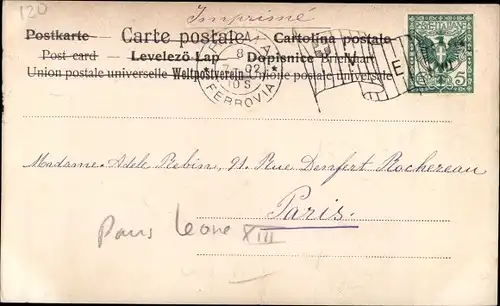 120
Imprimé
Postkarte — Carte postale — Cartolina postale
Post-card — Levelező-Lap — Dopisnice Briefkart
Union postale universelle Weltpostverein postale universale
8
10 S
FERROVIA
E
5
Madame Adele Robin, 91. Rue Denfert Rochereau
Paris.
Paus Leone XIII